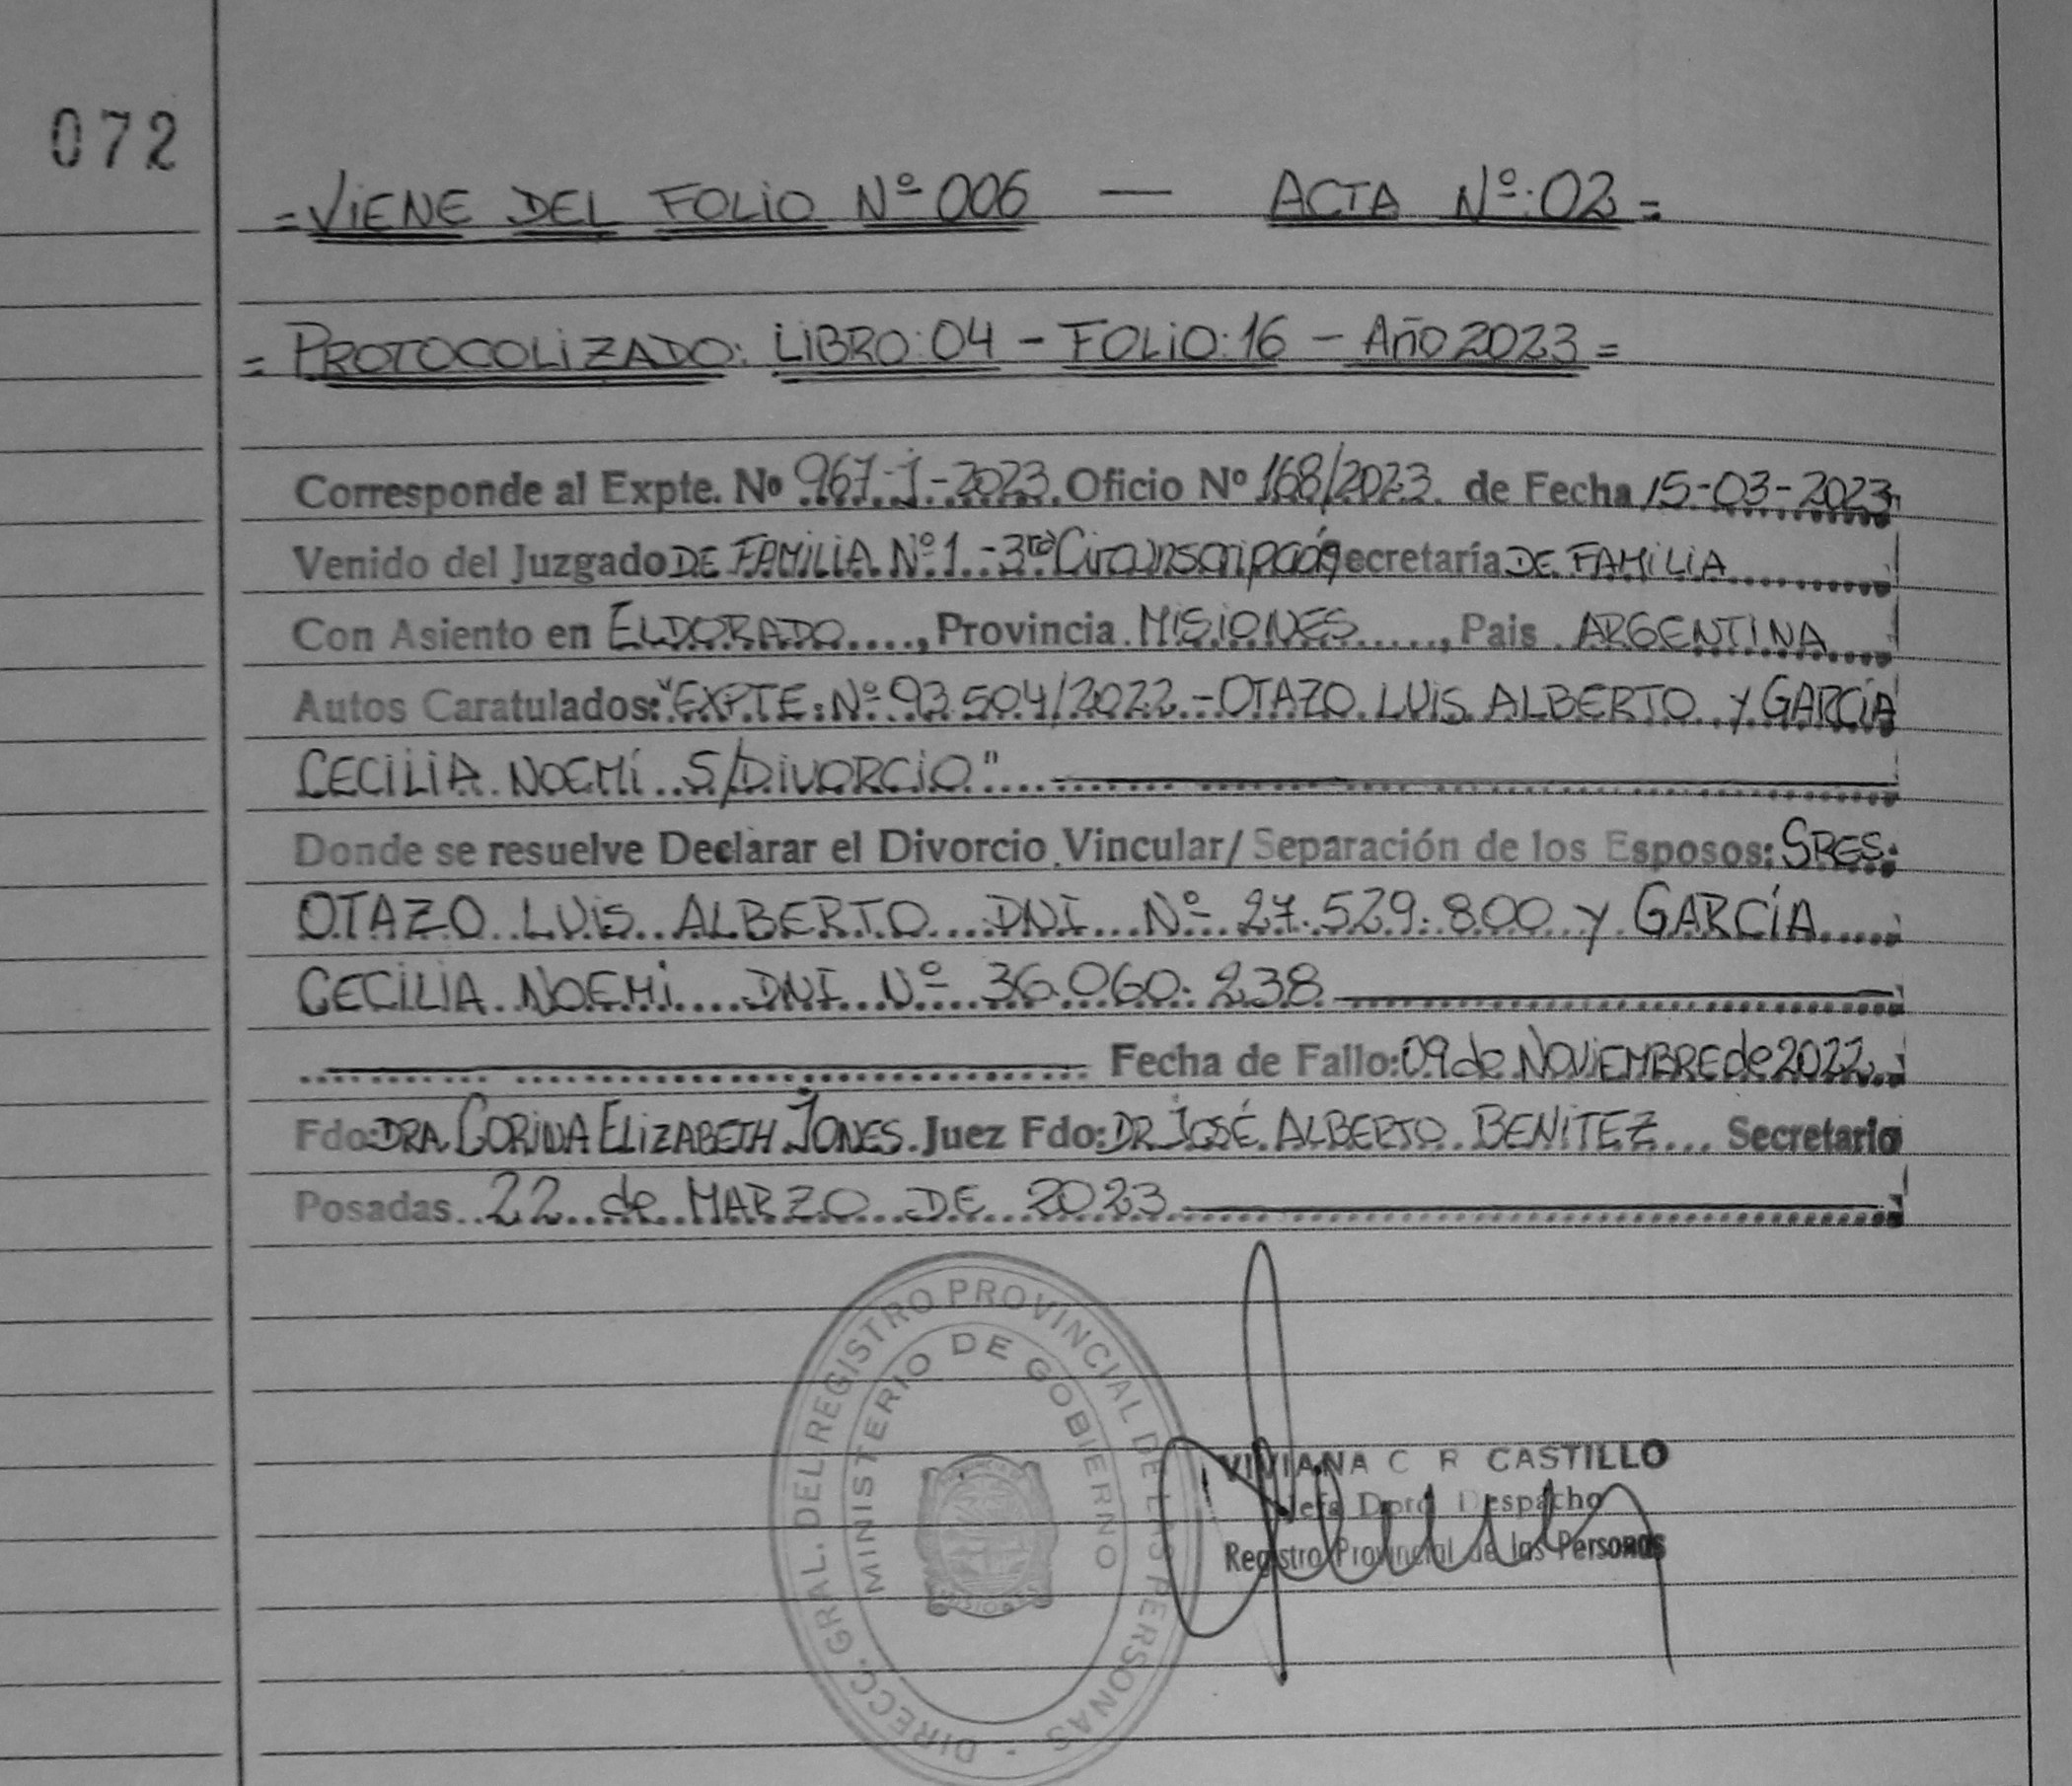 072
=VIENE DEL FOLIO Nº 006 — ACTA Nº: 02=
=PROTOCOLIZADO: LIBRO: 04 - FOLIO: 16 - AÑO 2023=
Corresponde al Expte. Nº 967-J-2023. Oficio Nº 168/2023. de Fecha 15-03-2023
Venido del Juzgado DE FAMILIA Nº 1 - 3ra Circunscripción Secretaría DE FAMILIA
Con Asiento en ELDORADO...., Provincia MISIONES....., Pais ARGENTINA
Autos Caratulados: "EXPTE. Nº 93.504/2022 - OTAZO LUIS ALBERTO Y GARCÍA
CECILIA NOEMÍ S/DIVORCIO"
Donde se resuelve Declarar el Divorcio Vincular/ Separación de los Esposos: SRES.
OTAZO LUIS ALBERTO DNI Nº 27.529.800 y GARCÍA
CECILIA NOEMI DNI Nº 36.060.238
Fecha de Fallo: 09 de NOVIEMBRE de 2022
Fdo: DRA. CORINA ELIZABETH JONES. Juez Fdo: DR JOSÉ ALBERTO BENITEZ Secretario
Posadas 22 de MARZO DE 2023
DIRECC. GRAL. DEL REGISTRO PROVINCIAL DE LAS PERSONAS
MINISTERIO DE GOBIERNO
VIVIANA C R CASTILLO
Jefa Dpto Despacho
Registro Provincial de las Personas